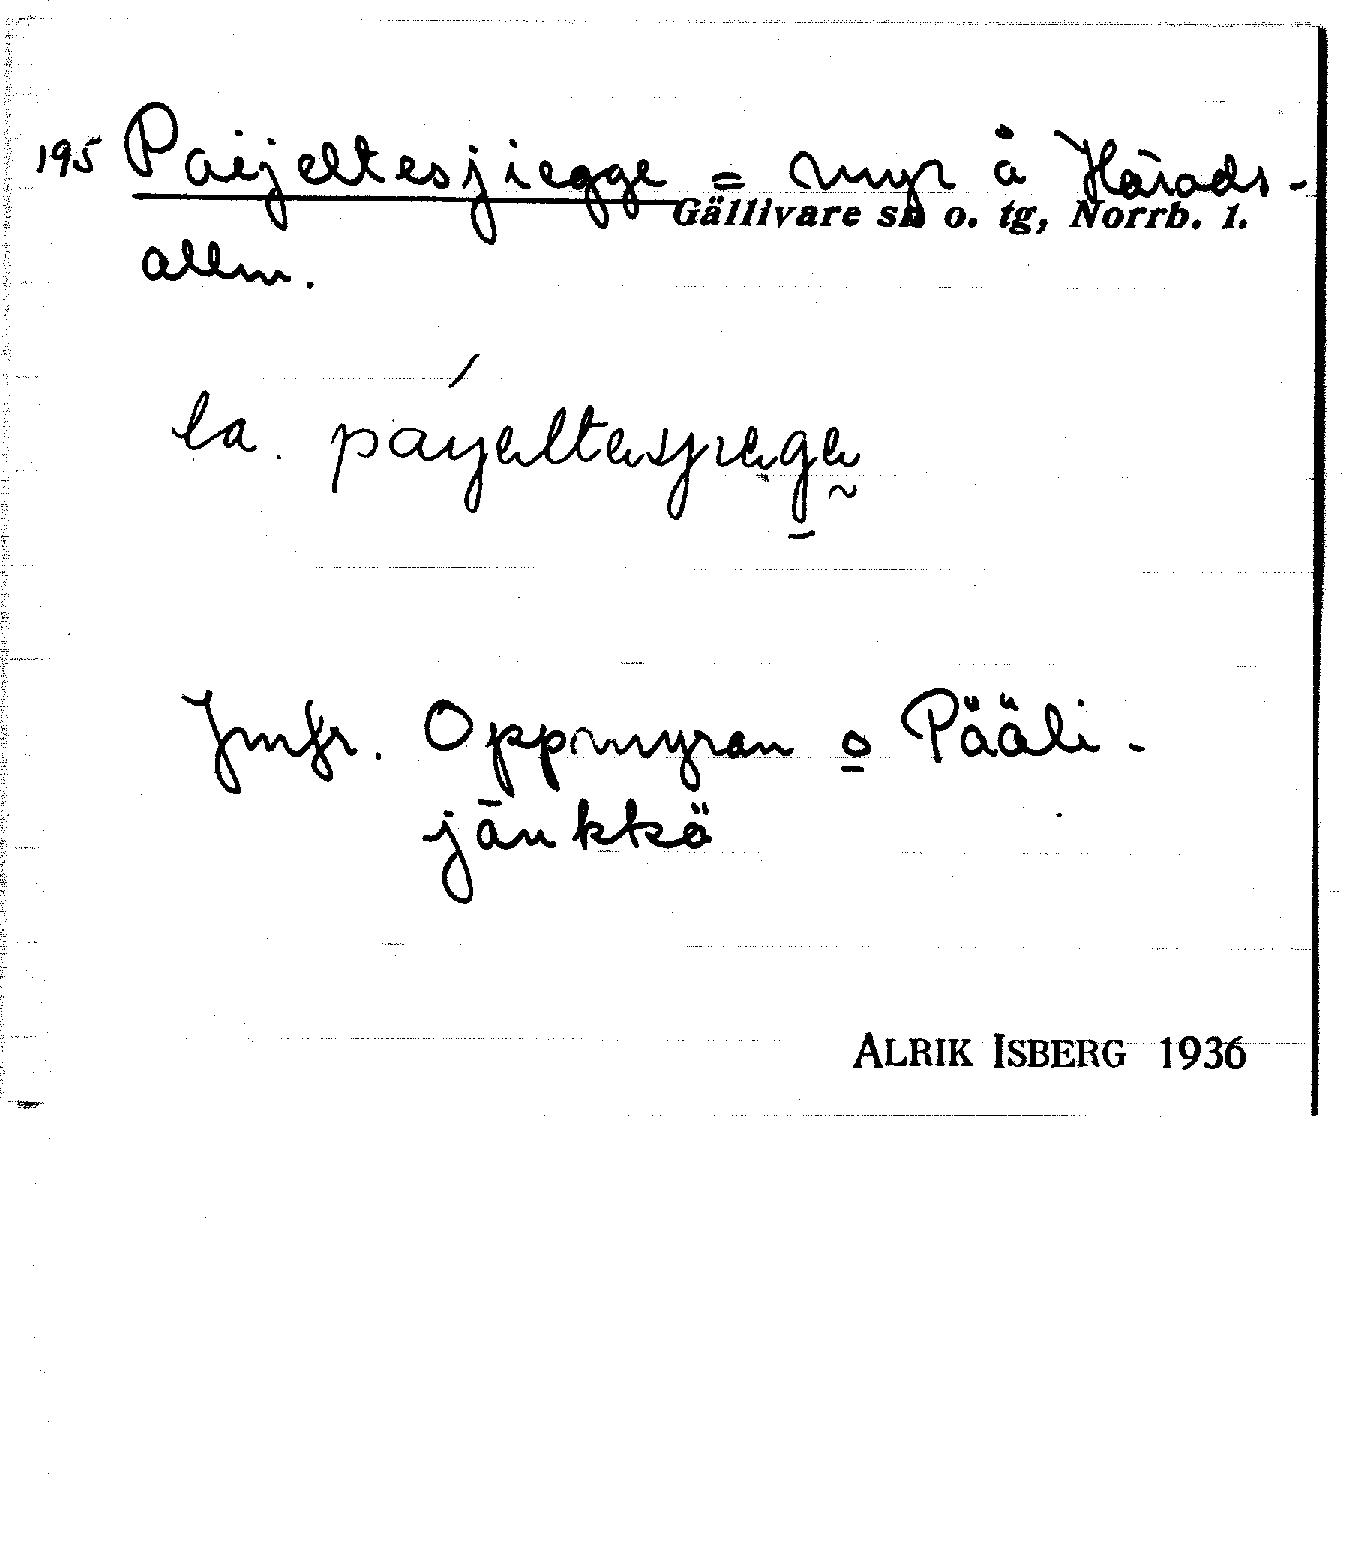 195 Paijeltesjiegge = myr å Härads-
Gällivare sn o. tg, Norrb. l.
allm.
la. páijeltesjiege
Jmfr. Oppmyran o Pääli-
jänkkä
ALRIK ISBERG 1936